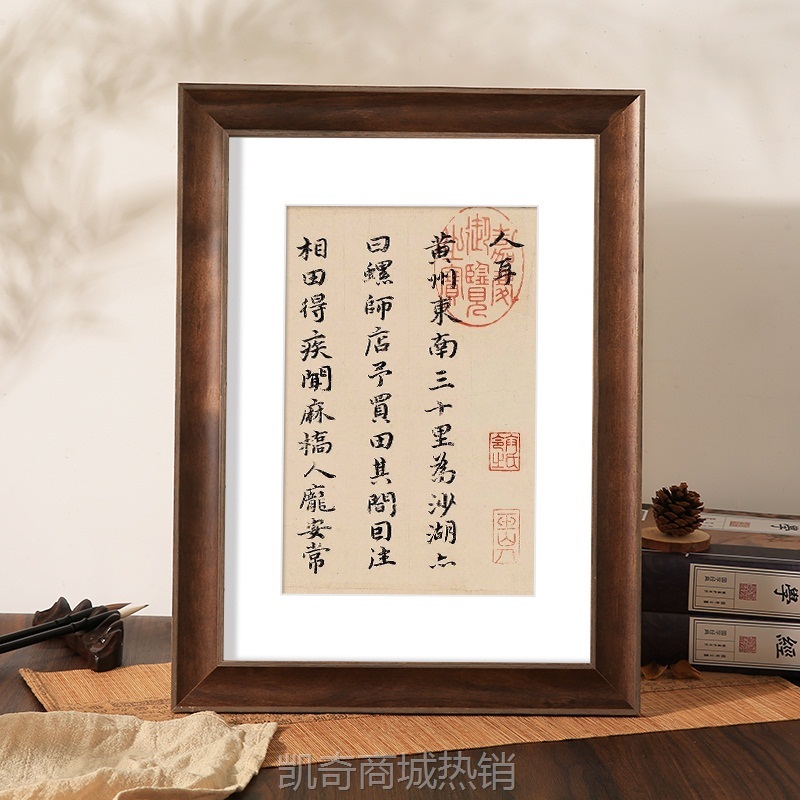 人耳
黄州東南三十里為沙湖亦
曰螺師店予買田其間因往
相田得疾聞麻橋人龐安常
嘉慶御覽之寶
學
經
凯奇商城热销